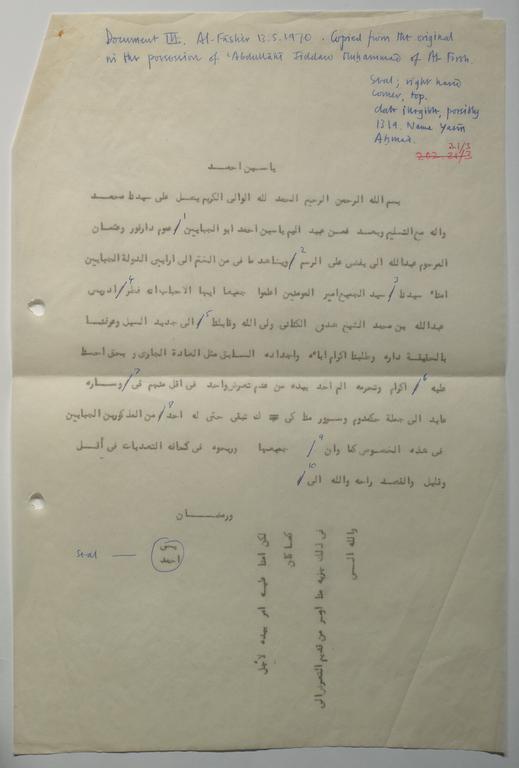 Document III. Al-Fasher 13.5.1970. Copied from the original
in the possession of 'Abdullāhi Jiddaw Muḥammad of At Tirsh.
Seal; right hand
corner, top.
date illegible, possibly
1319. Name Yasin
Aḥmad.
21/3
202. 21/3
ياسين احمد
بسم الله الرحمن الرحيم الحمد لله الوالى الكريم يصل على سيدنا محمد
واله مع التسليم وبعد فمن عبيد اليم ياسين احمد ابو الجبايين 1/ عموم دارفور وعثمان
المرحوم عبدالله الى يفض على الرسم 2/ ويساعد ما فى من الختم الى ارابيى الدولة الجبايين
امناء سيدنا 3/ سيد الجميع امير العومين اعلموا جميعا ايها الاحباب انه 4/ ادريس
عبدالله بن محمد الشيخ عدون الكنانى ولى الله وقابلنا 5/ الى جديد السيل وعرفنا
بالحقيقة داره وطلبنا اكرام اباءه واجداده السابق مثل العادة الجاوى بحق احسنا
عليه 6/ اكرام وتحرمه الم احد بيده من عدم تعرض واحد فى اقل منهم فى 7/ وساره
عايد الى جملة حكمدوم وسرور منا كى لك تبقى حتى له احد 8/ من المذكورين الجبايين
فى هذه الخصوص كما وان 9/ جميعها وريموه فى كماله التعديات فى أقل
وقليل والقصد راحه والله الى 10/
ورمضان
Seal —
يسن
احمد
لكن امنا عليه امر بيده لأجل
كما كان
فى ذلك جزيه منا اومر من تقديم التعرض الى
والله الى